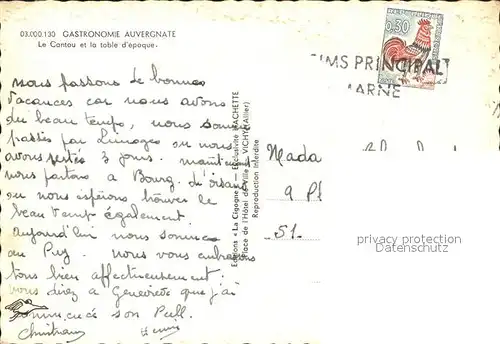 03.000.130 GASTRONOMIE AUVERGNATE
Le Cantou et la table d'époque.
nous passons de bonnes
vacances car nous avons
du beau temps, nous sommes
passés par Limoges ou nous
avons restés 3 jours. maintenant
nous partons a Bourg. d'oisans
ou nous espérons trouver le
beau temps également
aujourd'hui nous sommes
au Puy. nous vous embrassons
tous bien affectueusement.
vous direz a Geneviève que j'ai
commencé son Pull.
Christiane
Editions « La Cigogne » — Exclusivité HACHETTE
Place de l'Hôtel de Ville — VICHY (Allier)
Reproduction Interdite
REPUBLIQUE FRANCAISE
0,30
IMS PRINCIPAL
MARNE
Mada
9 Pl
51.
privacy protection
Datenschutz